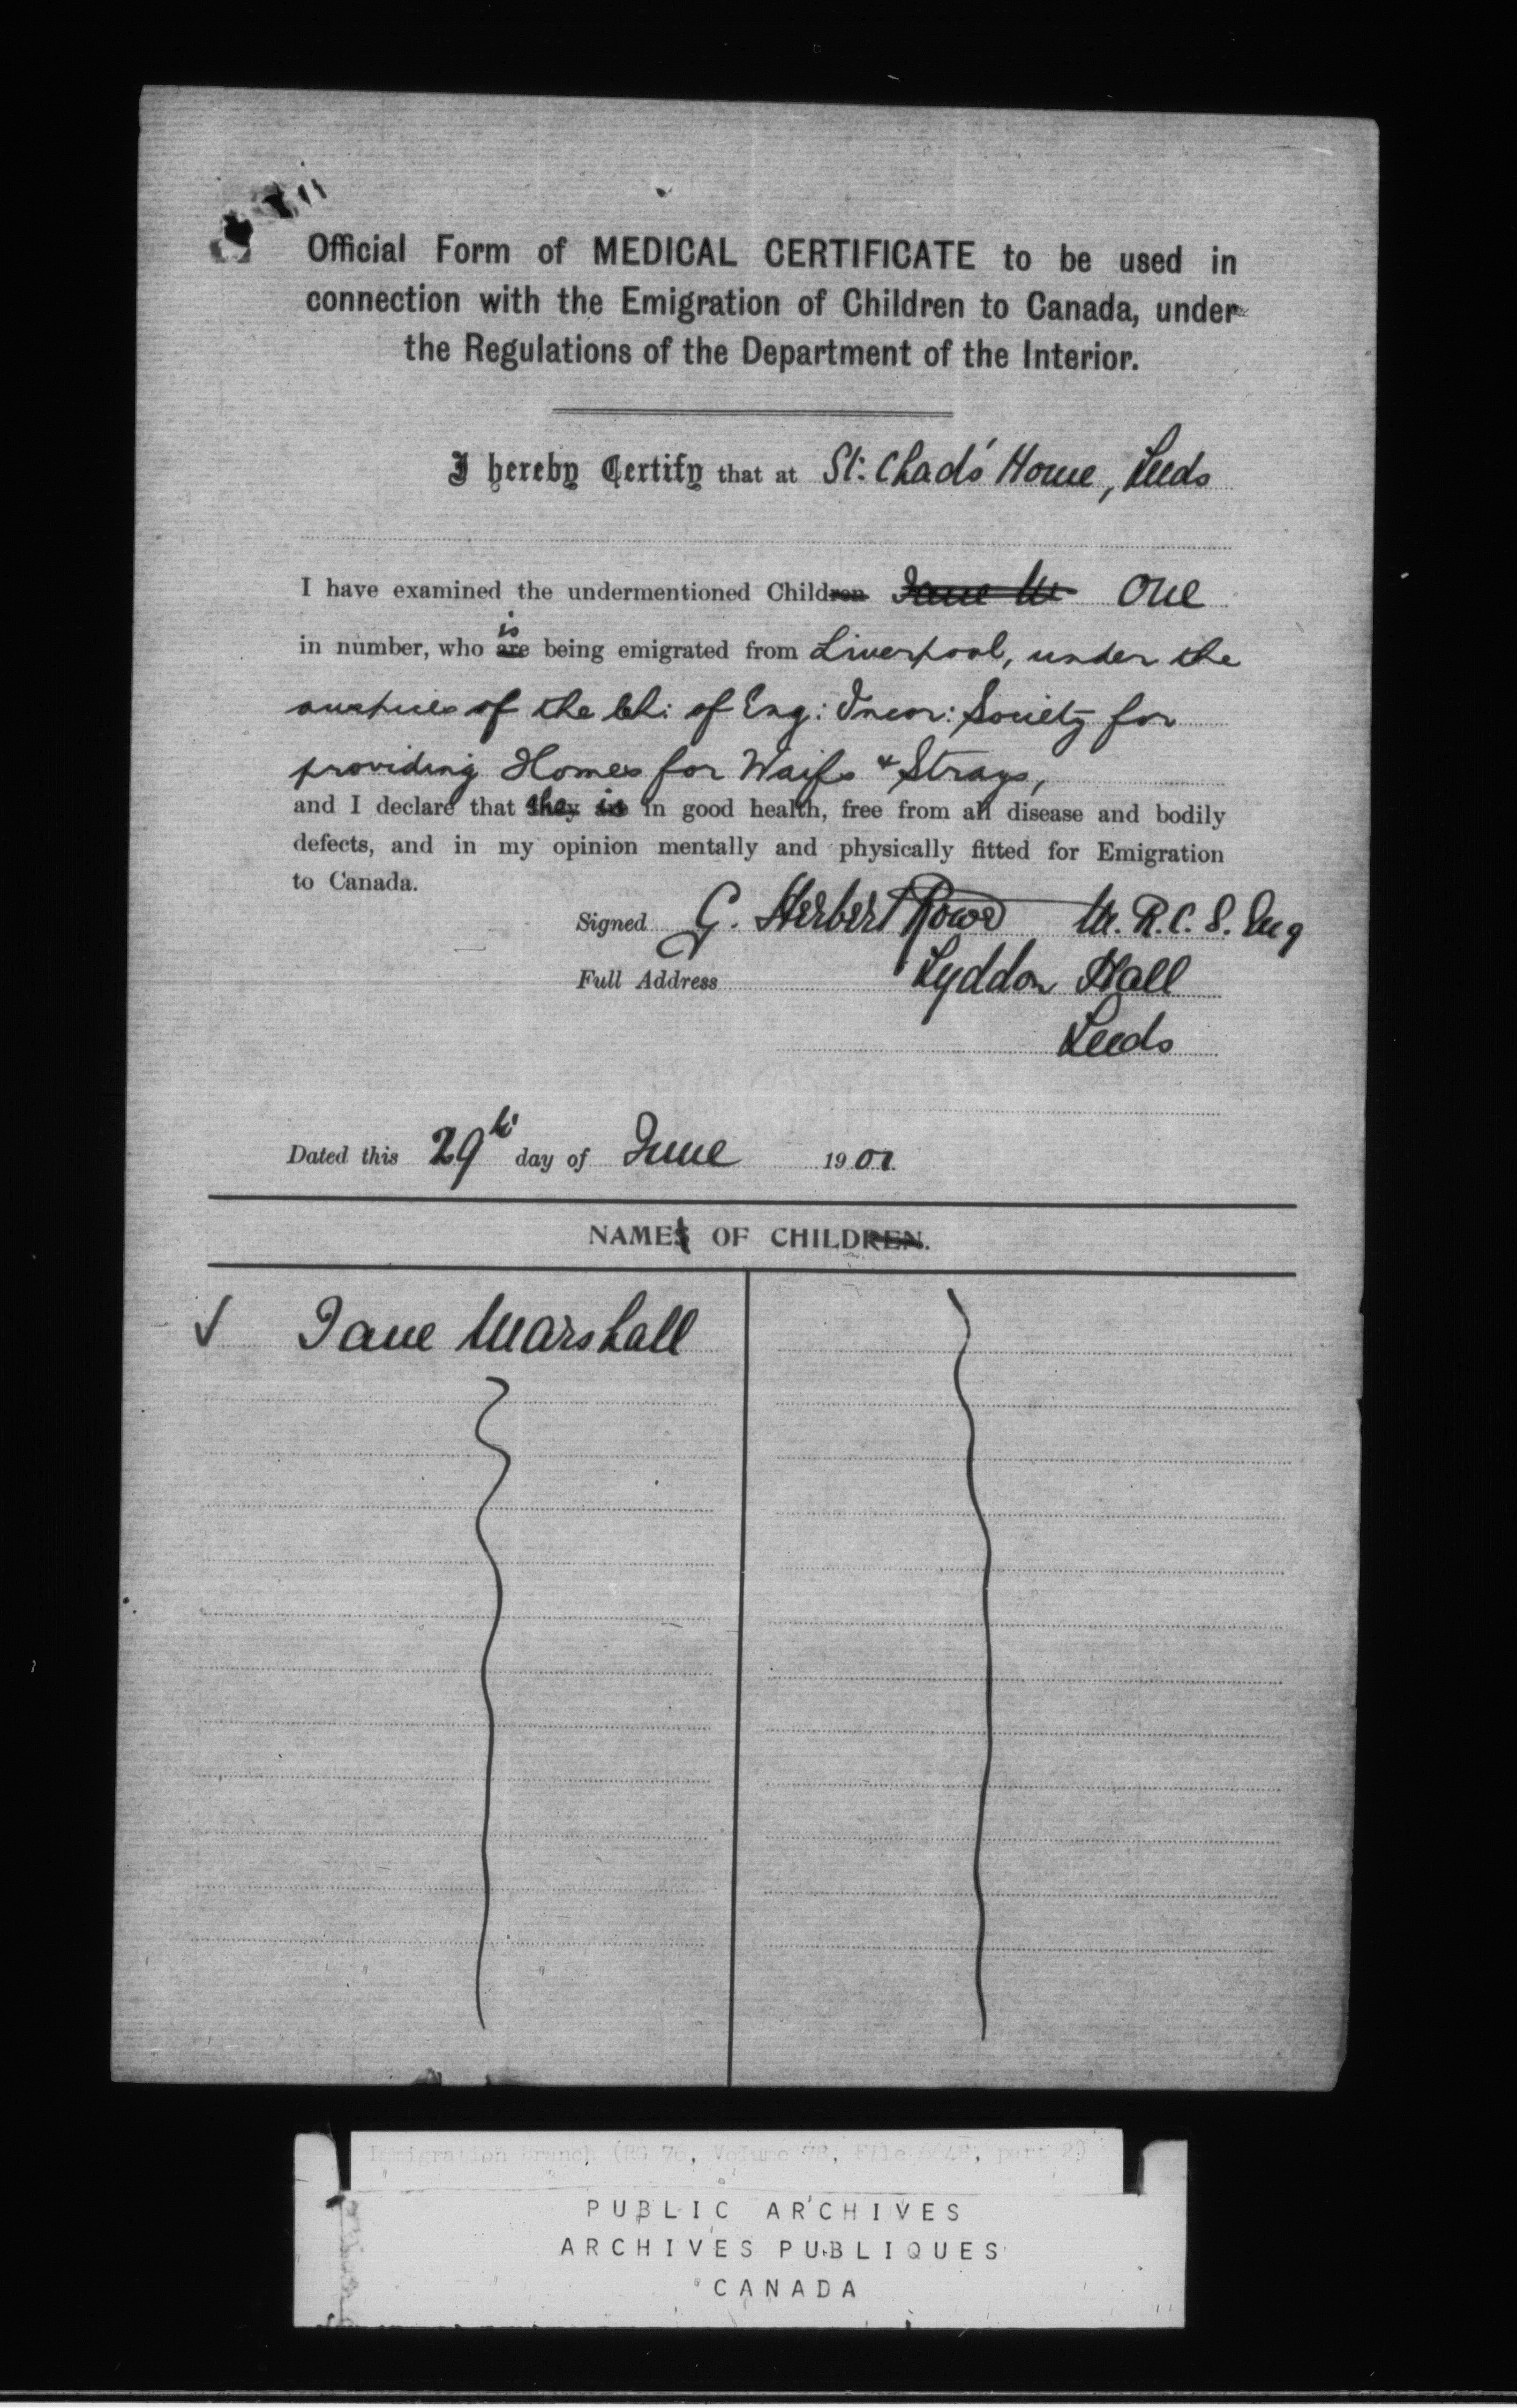 Official Form of MEDICAL CERTIFICATE to be used in
connection with the Emigration of Children to Canada, under
the Regulations of the Department of the Interior.
I hereby Certify that at St: Chad's Home, Leeds
I have examined the undermentioned Children Jane M One
is
in number, who are being emigrated from Liverpool, under the
auspices of the Ch: of Eng: Incor: Society for
providing Homes for Waifs & Strays,
and I declare that she is in good health, free from all disease and bodily
defects, and in my opinion mentally and physically fitted for Emigration
to Canada.
Signed G. Herbert Rowe M.R.C.S. Eng
Full Address Lyddon Hall
Leeds
Dated this 29th day of June 1901
NAMES OF CHILDREN.
✓ Jane Marshall
Immigration Branch (RG 76, Volume 78, File 6648, part 2)
PUBLIC ARCHIVES
ARCHIVES PUBLIQUES
CANADA